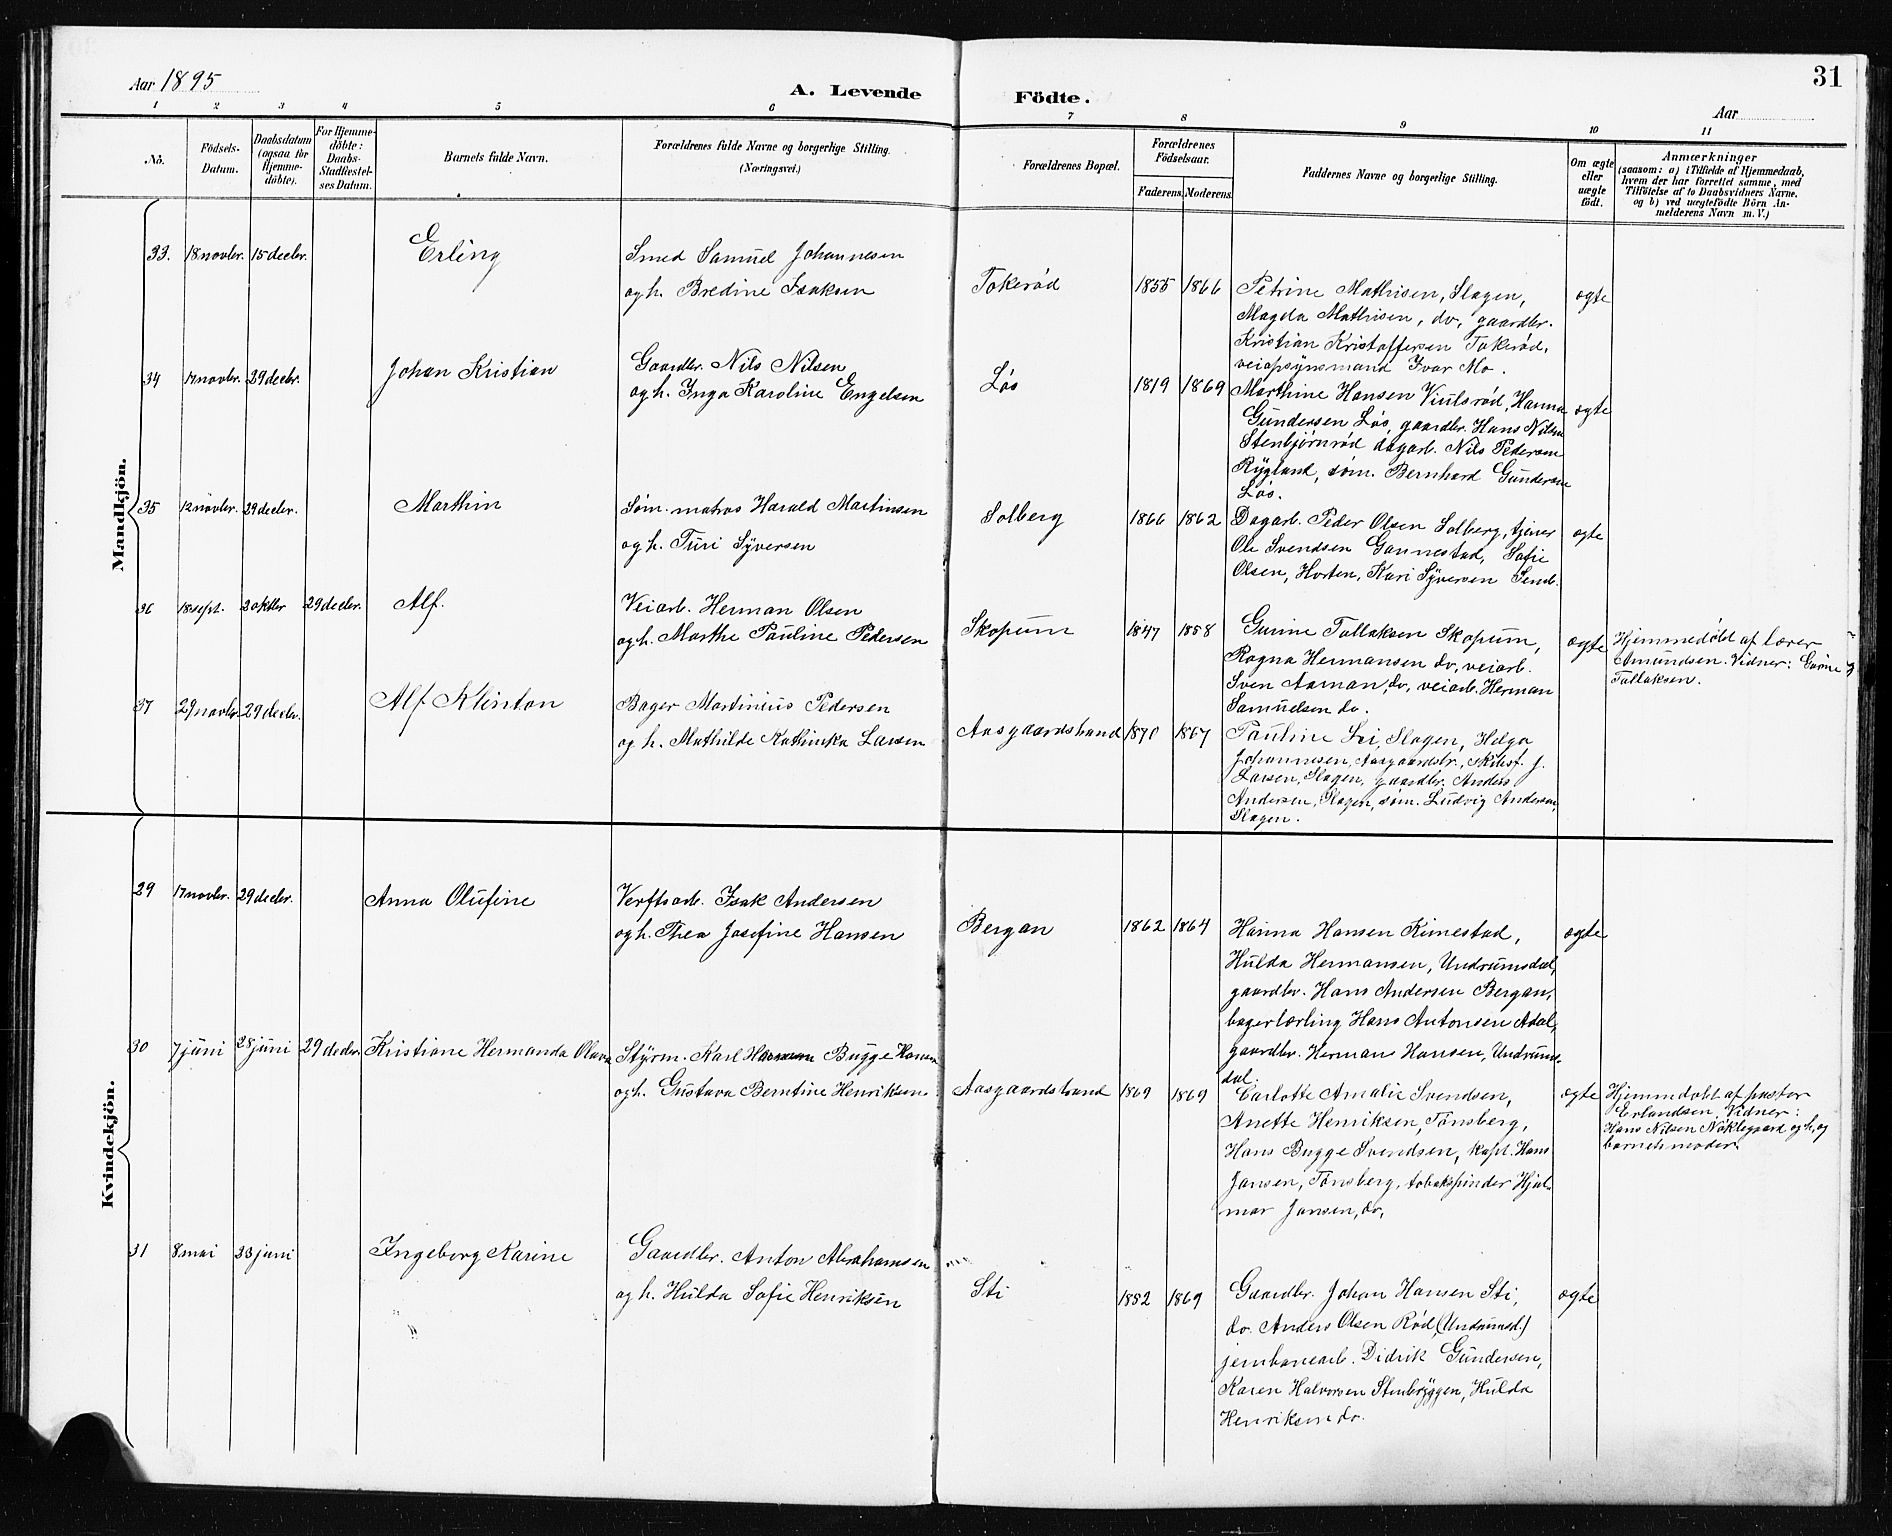 Aar 1895
A. Levende Födte.
Aar
31
1 2 3 4 5 6 7 8 9 10 11
No.
Födsels-Datum.
Daabsdatum (ogsaa for Hjemme-döbte).
For Hjemme-döbte: Daabs-Stadfæstel-ses Datum.
Barnets fulde Navn.
Forældrenes fulde Navne og borgerlige Stilling. (Næringsvei.)
Forældrenes Bopæl.
Forældrenes Födselsaar.
Faderens.
Moderens.
Faddernes Navne og borgerlige Stilling.
Om ægte eller uægte födt.
Anmærkninger
(saasom: a) i Tilfælde af Hjemmedaab,
hvem der har forrettet samme, med
Tilföielse af to Daabsvidners Navne.
og b) ved uægtefödte Börn An-
melderens Navn m. V.)
Mandkjön.
33. 18 novbr. 15 decbr. Erling
Smed Samuel Johannesen
og h. Bredine Isaksen
Tokerød 1855 1866
Petrine Mathisen, Slagen,
Magda Mathisen, do, gaardbr.
Kristian Kristoffersen Tokerød,
veiopsynsmand Ivar Mo.
ægte
34 17 novbr. 29 decbr. Johan Kristian
Gaardbr. Nils Nilsen
og h. Inga Karoline Engelsen
Løs 1819 1869
Marthine Hansen Viulsrød, Hanna
Gundersen Løs, gaardbr. Hans Nilsen
Stenbjørnrød dagarb. Nils Pedersen
Rygland, søm. Bernhard Gundersen
Løs.
ægte
35 12 novbr. 29 decbr. Marthin
Søm. matros Harald Martinsen
og h. Turi Syversen
Solberg 1866 1862
Dagarb. Peder Olsen Solberg, tjener
Ole Svendsen Gannestad, Sofie
Olsen, Horten, Kari Syversen Semb.
ægte
36 18 sept. 2 oktbr 29 decbr. Alf.
Veiarb. Herman Olsen
og h. Marthe Pauline Pedersen
Skopum 1847 1858
Gurine Tollaksen Skopum,
Ragna Hermansen do, veiarb.
Sven Aaman, do, veiarb. Herman
Samuelsen do.
ægte
Hjemmedøbt af lærer
Amundsen. Vidner: Gurine
Tollaksen.
37 29 novbr. 29 decbr. Alf Klinton
Bager Martinius Pedersen
og h. Mathilde Kathinka Larsen
Aasgaardstrand 1870 1867
Pauline Lei, Slagen, Helga
Johannesen, Aasgaardstr., Skibsf. J.
Larsen, Slagen, gaardbr. Anders
Andersen, Slagen, søm. Ludvig Andersen,
Slagen.
Kvindekjön.
29 17 novbr. 29 decbr. Anna Olufine
Verftsarb. Isak Andersen
og h. Thea Josefine Hansen
Bergan 1862 1864
Hanna Hansen Kimestad,
Hulda Hermansen, Undrumsdal,
gaardbr. Hans Andersen Bergan,
bagerlærling Hans Antonsen Adal,
gaardbr. Herman Hansen, Undrums-
dal.
ægte
30 7 juni 28 juni 29 decbr. Kristiane Hermanda Olava
Styrm. Karl Bugge Hansen
og h. Gustava Berntine Henriksen
Aasgaardstrand 1869 1869
Carlotte Amalie Svendsen,
Anette Henriksen, Tønsberg,
Hans Bugge Svendsen, kapt. Hans
Jansen, Tønsberg, tobakspinder Hjal-
mar Jansen, do,
ægte
Hjemmedøbt af pastor
Erlandsen, Vidner:
Hans Nilsen Nøklegaard og h, og
barnets moder
31 8 mai 23 juni Ingeborg Karine
Gaardbr. Anton Abrahamsen
og h. Hulda Sofie Henriksen
Sti 1852 1869
Gaardbr. Johan Hansen Sti,
do. Anders Olsen Rød, (Undrumsd.)
jernbanearb. Didrik Gundersen,
Karen Halvorsen Stenbryggen, Hulda
Henriksen do.
ægte